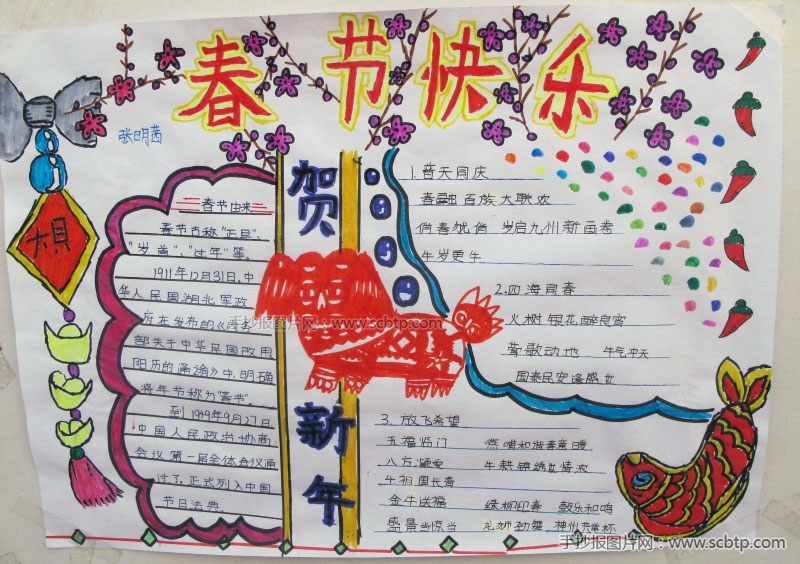 春节快乐
张明茜
春节由来
春节古称"正旦"、
"岁首"、"过年"等。
1911年12月31日,中
华人民国湖北军政
府在发布的《内务
部关于中华民国改用
阳历的通谕》中,明确
将年节称为"春节"。
到1949年9月27日
中国人民政治协商
会议第一届全体会议通
过了,正式列入中国
节日法典.
贺
新
年
1.普天同庆
春融百族大歌欢
俏春犹俏 岁启九州新画卷
牛岁更牛
2.四海同春
火树银花醉良宵
莺歌动地 牛气冲天
国泰民安逢盛世
3.放飞希望
五福临门
八方凝安 牛耕锦绣
牛祖国长青
金牛送福 绿柳迎春 鼓乐和鸣
盛景当惊 龙狮劲舞 神州共举杯
手抄报图片网:www.scbtp.com
手抄报图片网:www.scbtp.com